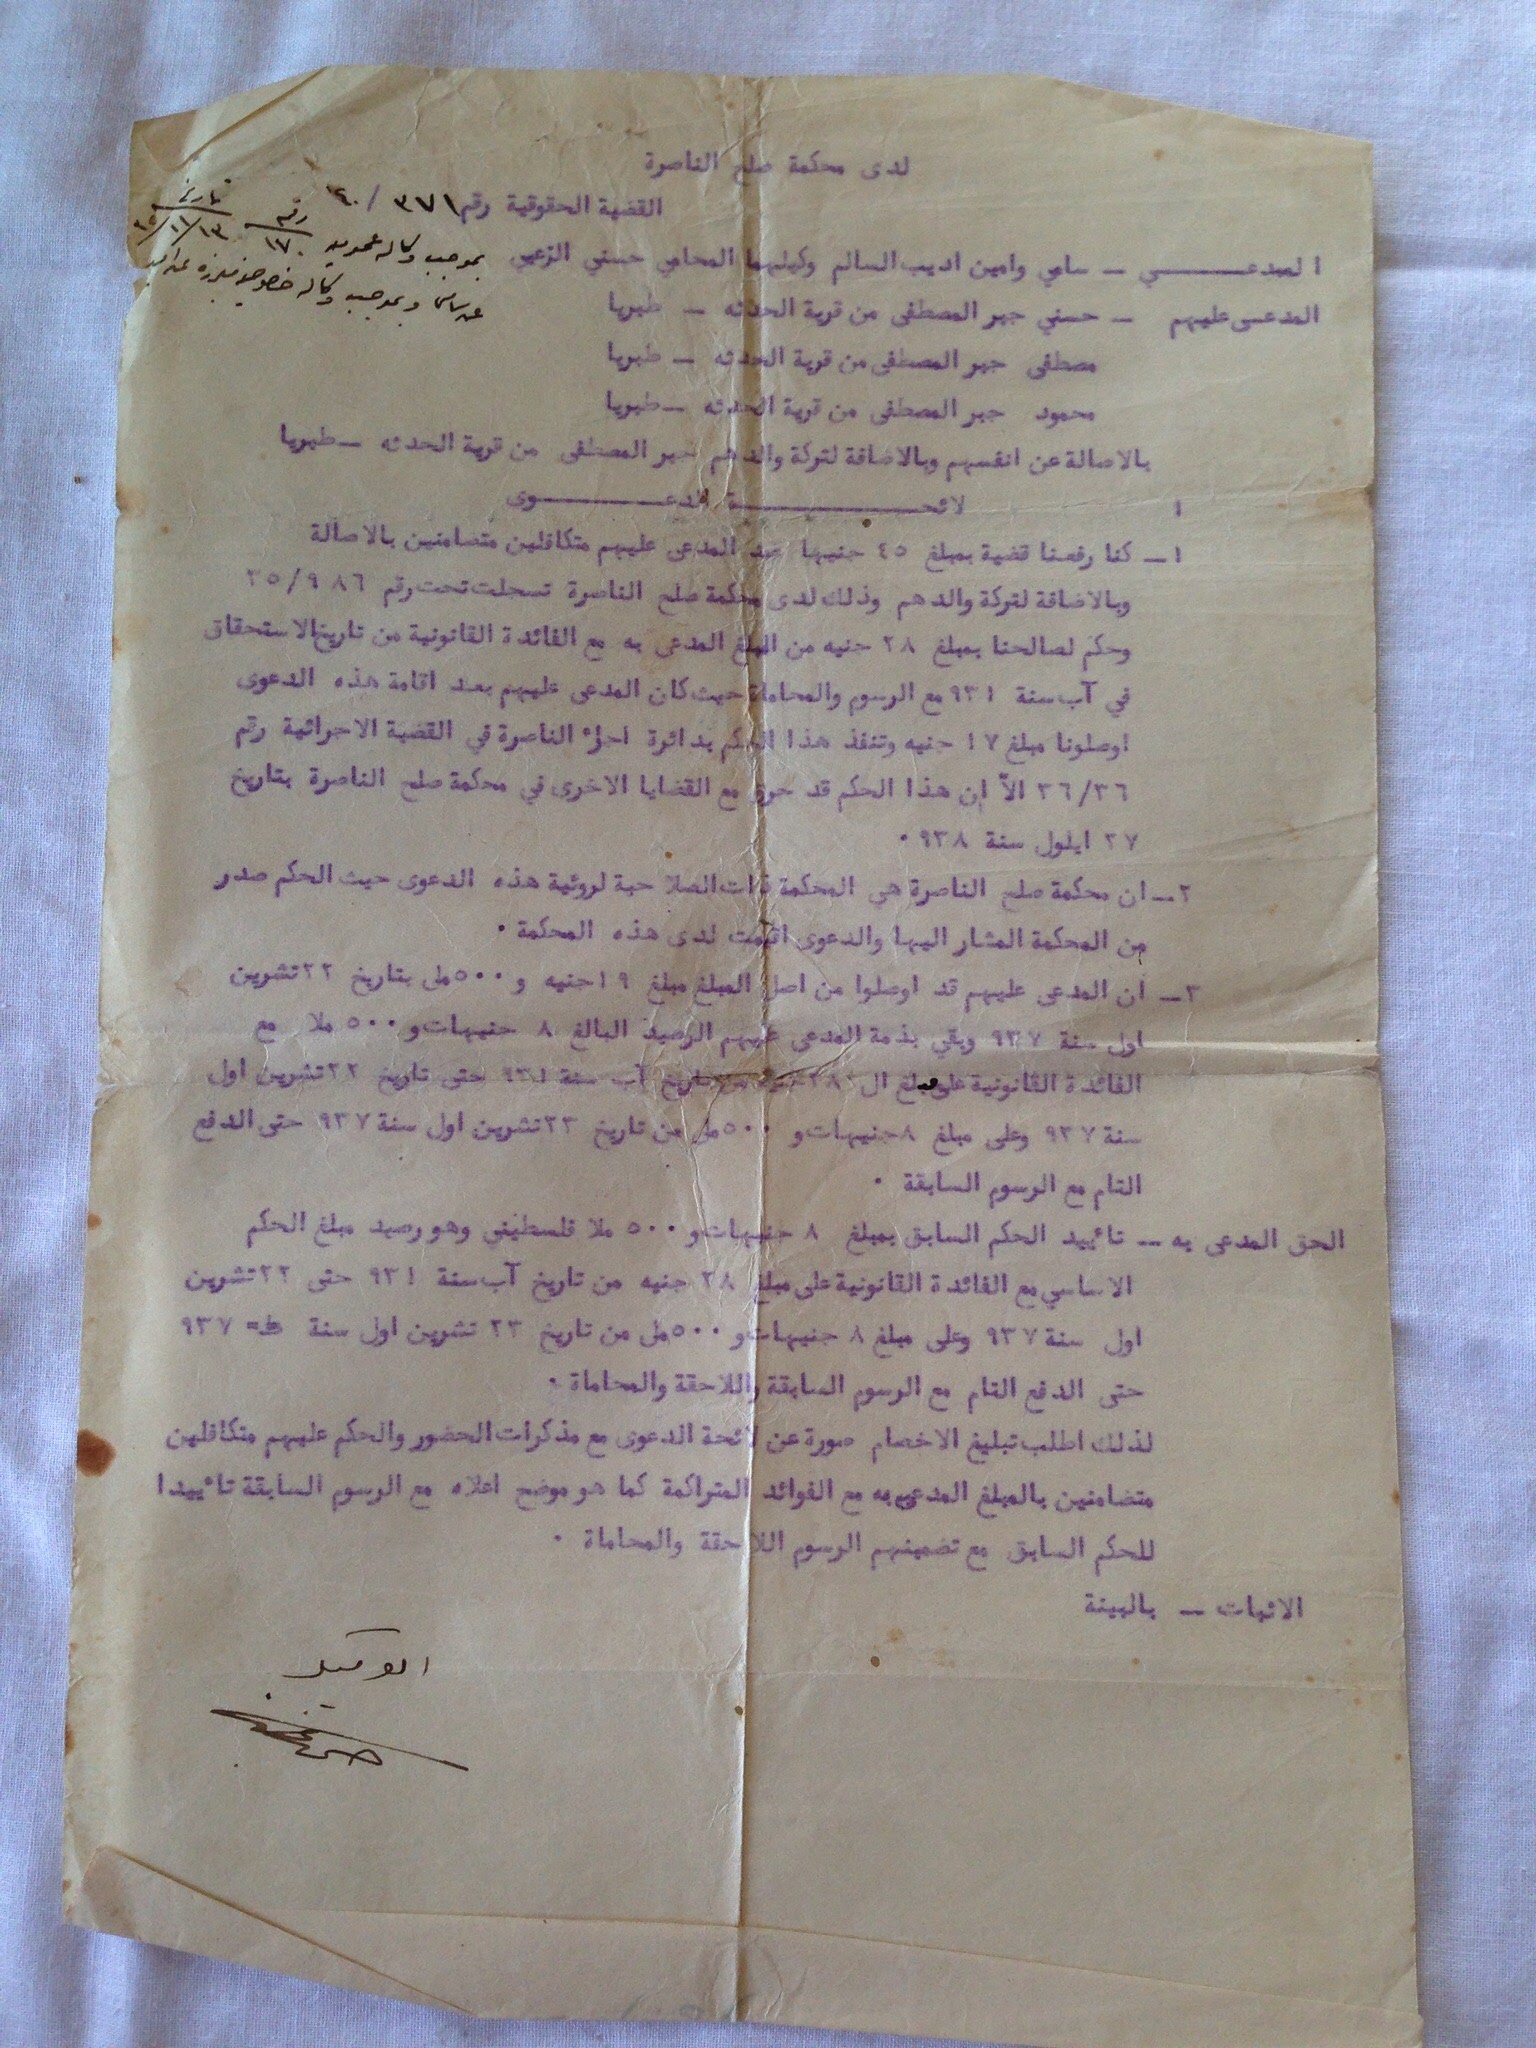 لدى محكمة صلح الناصرة
القضية الحقوقية رقم ٣٧١ / ٩٤٠
المدعــــــي ــ سامي وامين اديب السالم وكيلهما المحامي حسني الزعبي
بموجب وكاله عموميه رقم ١٧٠ تاريخ
وبموجب وكاله خصوصيه
المدعى عليهم ــ حسني جبر المصطفى من قرية الحدثه ــ طبريا
مصطفى جبر المصطفى من قرية الحدثه ــ طبريا
محمود جبر المصطفى من قرية الحدثه ــ طبريا
بالاصالة عن انفسهم وبالاضافة لتركة والدهم جبر المصطفى من قرية الحدثه ــ طبريا
لائحــــــــة الدعــــــــوى
١ــ كنا رفعنا قضية بمبلغ ٤٥ جنيها ضد المدعى عليهم متكافلين متضامنين بالاصالة
وبالاضافة لتركة والدهم وذلك لدى محكمة صلح الناصرة تسجلت تحت رقم ٩٨٦/٣٥
وحكم لصالحنا بمبلغ ٢٨ جنيه من المبلغ المدعى به مع الفائدة القانونية من تاريخ الاستحقاق
في آب سنة ٩٣١ مع الرسوم والمحاماة حيث كان المدعى عليهم بعد اقامة هذه الدعوى
اوصلونا مبلغ ١٧ جنيه وتنفذ هذا الحكم بدائرة اجراء الناصرة في القضية الاجرائية رقم
٣٦/٢٦ الاّ ان هذا الحكم قد حرق مع القضايا الاخرى في محكمة صلح الناصرة بتاريخ
٢٧ ايلول سنة ٩٣٨ ٠
٢ــ ان محكمة صلح الناصرة هي المحكمة ذات الصلاحية لروئية هذه الدعوى حيث الحكم صدر
من المحكمة المشار اليها والدعوى اقيمت لدى هذه المحكمة ٠
٣ــ ان المدعى عليهم قد اوصلوا من اصل المبلغ مبلغ ١٩ جنيه و ٥٠٠ مل بتاريخ ٢٢ تشرين
اول سنة ٩٣٧ وبقي بذمة المدعى عليهم الرصيد البالغ ٨ جنيهات و ٥٠٠ ملا مع
الفائدة القانونية على مبلغ ال ٢٨ جنيه من تاريخ آب سنة ٩٣١ حتى تاريخ ٢٢ تشرين اول
سنة ٩٣٧ وعلى مبلغ ٨ جنيهات و ٥٠٠ مل من تاريخ ٢٣ تشرين اول سنة ٩٣٧ حتى الدفع
التام مع الرسوم السابقة ٠
الحق المدعى به ــ تأييد الحكم السابق بمبلغ ٨ جنيهات و ٥٠٠ ملا فلسطيني وهو رصيد مبلغ الحكم
الاساسي مع الفائدة القانونية على مبلغ ٢٨ جنيه من تاريخ آب سنة ٩٣١ حتى ٢٢ تشرين
اول سنة ٩٣٧ وعلى مبلغ ٨ جنيهات و ٥٠٠ مل من تاريخ ٢٣ تشرين اول سنة ٩٣٧
حتى الدفع التام مع الرسوم السابقة واللاحقة والمحاماة ٠
لذلك اطلب تبليغ الاخصام صورة عن لائحة الدعوى مع مذكرات الحضور والحكم عليهم متكافلين
متضامنين بالمبلغ المدعى به مع الفوائد المتراكمة كما هو موضح اعلاه مع الرسوم السابقة تأييدا
للحكم السابق مع تضمينهم الرسوم اللاحقة والمحاماة ٠
الاثبات ــ بالبينة
الوكيل